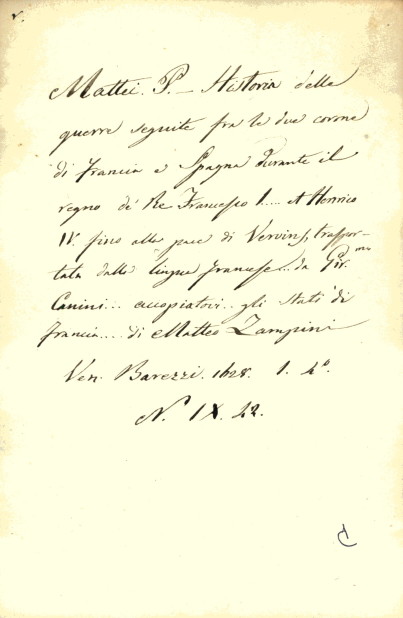 Mattei. P. - Historia delle
guerre seguite fra le due corone
di Francia e Spagna durante il
regno de' Re Francesco I.... et Henrico
IV. fino alla pace di Vervins, traspor-
tata dalla lingua francese... da Gir.mo
Canini... accopiatovi.. gli Stati di
francia.... di Matteo Zampini
Ven. Barezzi. 1628. 1. 4°.
N.° IX. 22.